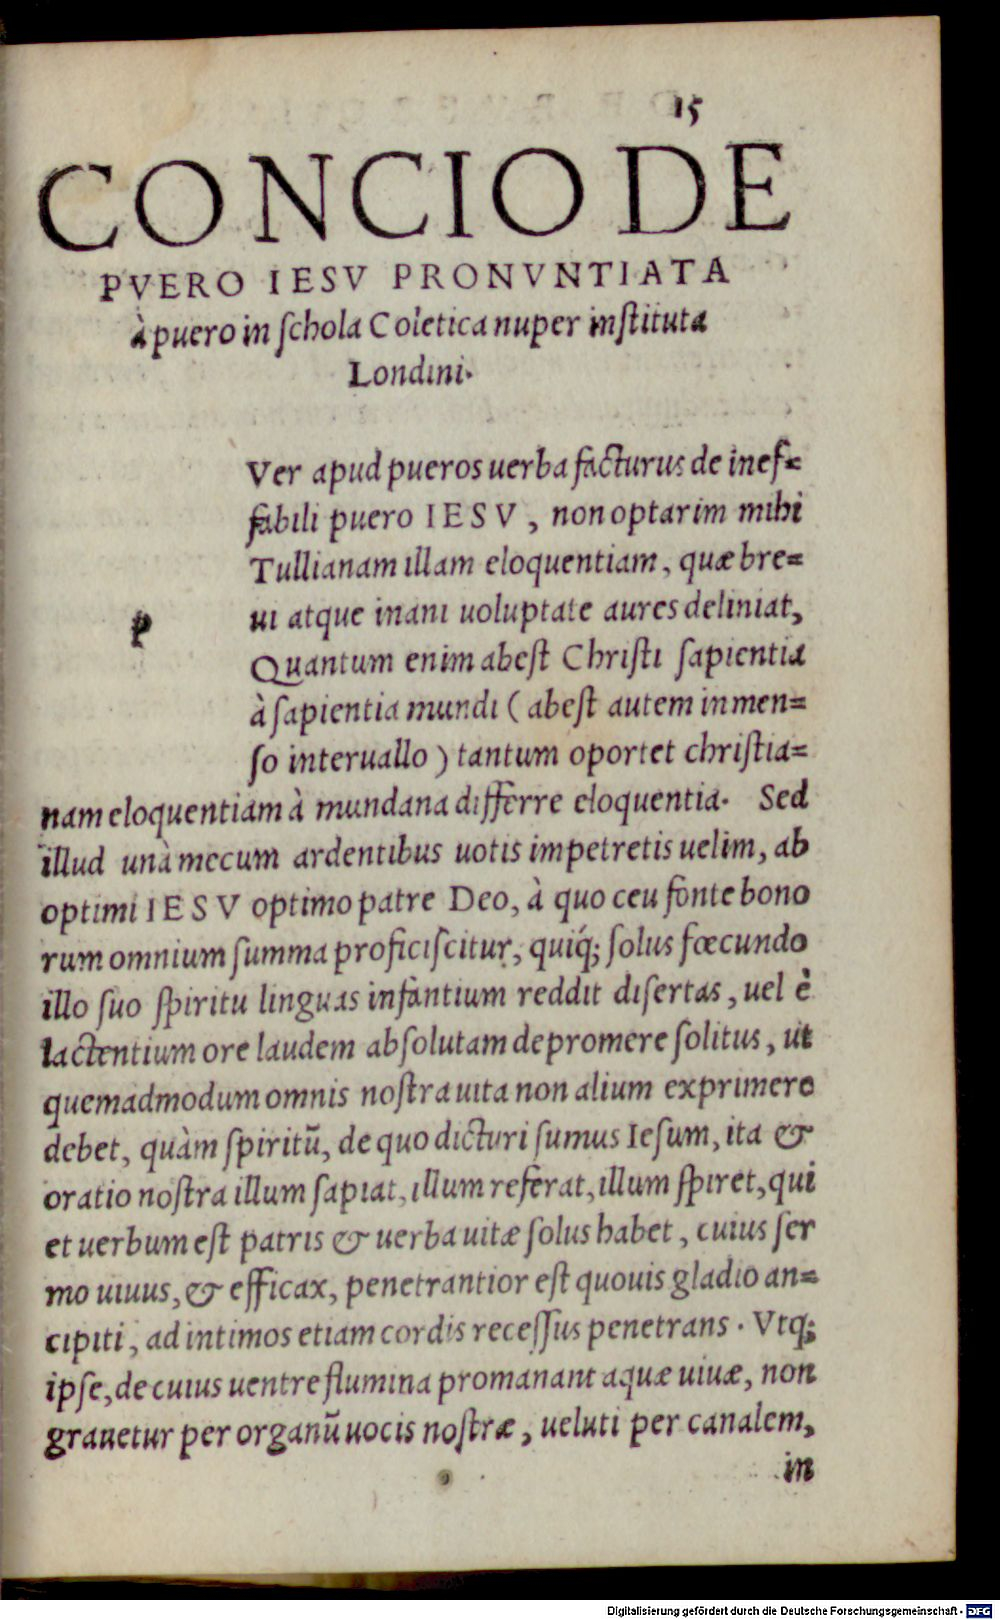 15
CONCIO DE
PVERO IESV PRONVNTIATA
à puero in schola Coletica nuper instituta
Londini.
p
Ver apud pueros uerba facturus de inef=
fabili puero IESV, non optarim mihi
Tullianam illam eloquentiam, quæ bre=
ui atque inani uoluptate aures deliniat,
Quantum enim abest Christi sapientia
à sapientia mundi (abest autem inmen=
so interuallo) tantum oportet christia=
nam eloquentiam à mundana differre eloquentia. Sed
illud unà mecum ardentibus uotis impetretis uelim, ab
optimi IESV optimo patre Deo, à quo ceu fonte bono
rum omnium summa proficiscitur, quiq́; solus fœcundo
illo suo spiritu linguas infantium reddit disertas, uel è
lactentium ore laudem absolutam depromere solitus, ut
quemadmodum omnis nostra uita non alium exprimere
debet, quàm spiritũ, de quo dicturi sumus Iesum, ita &
oratio nostra illum sapiat, illum referat, illum spiret, qui
et uerbum est patris & uerba uitæ solus habet, cuius ser
mo uiuus, & efficax, penetrantior est quouis gladio an=
cipiti, ad intimos etiam cordis recessus penetrans. Vtq;
ipse, de cuius uentre flumina promanant aquæ uiuæ, non
grauetur per organũ uocis nostræ, ueluti per canalem,
in
Digitalisierung gefördert durch die Deutsche Forschungsgemeinschaft - DFG